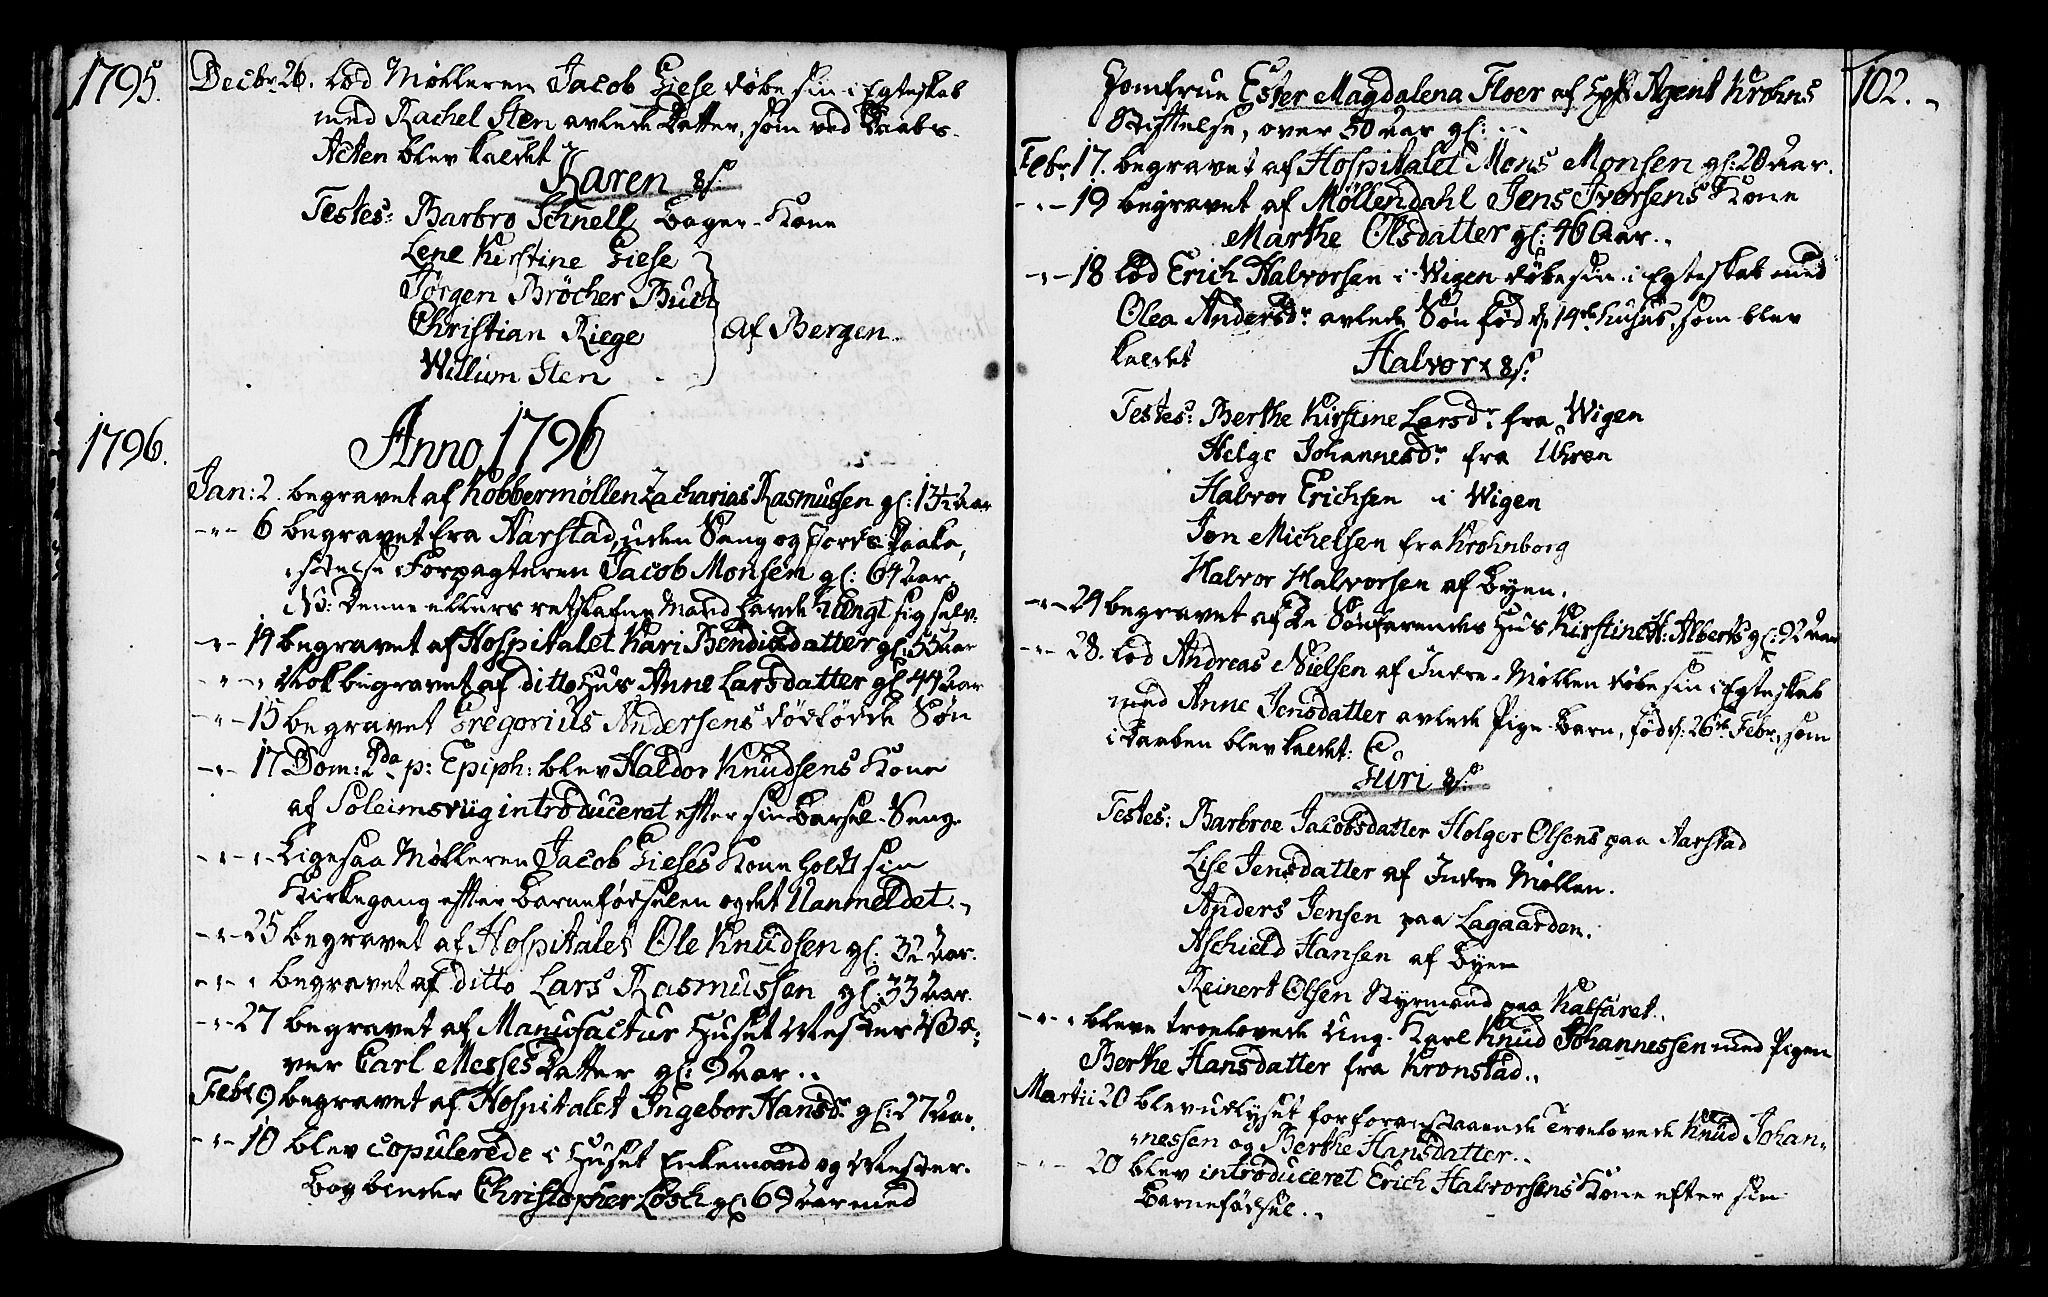 1795.
Decbr 26. Lod Mølleren Jacob Giese døbe sin i Egteskab
med Rachel Sten avlede Datter, som ved Daabs-
Acten blev kaldet
Karen
Testes: Barbro Schnell Bager-Kone
Lene Kirstine Giese
Jørgen Bröcher Buch
Christian Riege
Af Bergen.
Willum Sten
1796.
Anno 1796
Jan: 2. begravet af Kobbermöllen Zacharias Rasmussen gl: 13½ Aar
-"- 6 begravet fra Aarstad, uden Sang og Jords Paaka-
stelse Forpagteren Jacob Monsen gl: 64 Aar.
NB: Denne ellers retskafne Mand havde hængt sig selv.
-"- 14 begravet af Hospitalet Kari Bendixdatter gl: 55 Aar
-"- " Nok begravet af ditto Hus Anne Larsdatter gl 44 Aar
-"- 15 begravet Gregorius Andersens dødfödde Sön
-"- 17 Dom: 2da p: Epiph: blev Haldor Knudsens Kone
af Soleimsviig introduceret efter sin Barsel-Seng.
-"- " Ligesaa Mølleren Jacob Gieses Kone holdt sin
Kirkegang efter Barnefödselen og det Uanmeldet.
-"- 25 begravet af Hospitalet Ole Knudsen gl: 32 Aar.
-"- " begravet af ditto Lars Rasmussen gl: 33 Aar.
-"- 27 begravet af Manufactur Huset Mester Væ-
ver Carl Messes Datter gl: 9 Aar.
Febr 9 begravet af Hospitalet Ingebor Hansdr gl: 27 Aar.
-"- 10 blev copulerede i Huset Enkemand og Mester-
Bogbinder Christopher Lösch gl: 69 Aar med
102.
Jomfrue Ester Magdalena Floer af Agent Krohns
Stiftelse, over 50 Aar gl:
Febr. 17. begravet af Hospitalet Mons Monsen gl: 20 Aar.
-"- 19 begravet af Möllendahl Jens Iversens Kone
Marthe Olsdatter gl: 46 Aar.
-"- 18 Lod Erich Halvorsen i Wigen døbe sin i Egteskab med
Olea Andersdr avlede Søn fød d. 14de hujus, som blev
kaldet
Halvor
Testes: Berthe Kirstine Larsdr fra Wigen
Helge Johannesdr fra Uhren
Halvor Erichsen i Wigen
Jon Michelsen fra Krohnborg
Halvor Halvorsen af Byen.
-"- 24 begravet af De Søefarendes Hus Kirstine H: Alberts gl: 92 Aar
-"- 28. Lod Andreas Nielsen af Indre-Møllen døbe sin i Egteskab
med Anne Jensdatter avlede Pige-Barn, fød d: 26de Febr, som
i Daaben blev kaldet:
Guri
Testes: Barbroe Jacobsdatter Holger Olsens paa Aarstad
Lise Jensdatter af Indre Møllen.
Anders Jensen paa Lagaarden.
Aschield Hansen af Byen
Reinert Olsen Styrmand paa Kalfaret.
-"- " bleve troelovede Ung-Karl Knud Johannessen med Pigen
Berthe Hansdatter fra Kronstad.
Martii 20 blev udlyset for foranstaaende Troelovede Knud Johan-
nessen og Berthe Hansdatter.
-"- 20 blev introduceret Erich Halvorsens Kone efter sin
Barnefödsel.